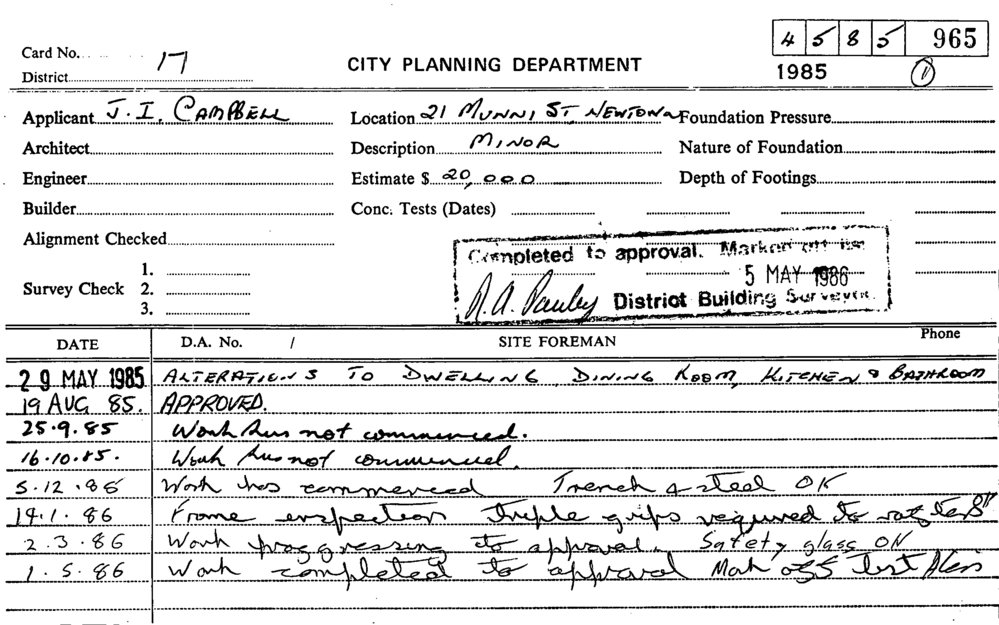 4 5 8 5 965
Card No. 17
CITY PLANNING DEPARTMENT
1985
District
Applicant J. I. CAMPBELL Location 21 MUNNI ST, NEWTOWN Foundation Pressure
Architect Description MINOR Nature of Foundation
Engineer Estimate $ 20,000 Depth of Footings
Builder Conc. Tests (Dates)
Alignment Checked
Completed to approval. Marked off list
1.
Survey Check 2.
5 MAY 1986
3.
District Building Surveyor.
DATE D.A. No. / SITE FOREMAN Phone
29 MAY 1985 ALTERATIONS TO DWELLING DINING ROOM, KITCHEN & BATHROOM
19 AUG 85. APPROVED.
25.9.85 Work has not commenced.
16.10.85. Work has not commenced.
5.12.85 Work has commenced Trench & steel OK
14.1.86 Frame inspection triple grips required to rafters
2.3.86 Work proggressing to approval. Safety glass OK
1.5.86 Work completed to approval Mark off list